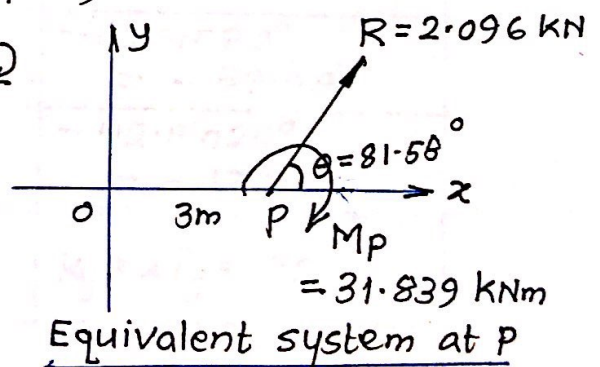 y
R=2.096 KN
θ=81.58°
x
O
3m
P
Mp
=31.839 kNm
Equivalent system at P